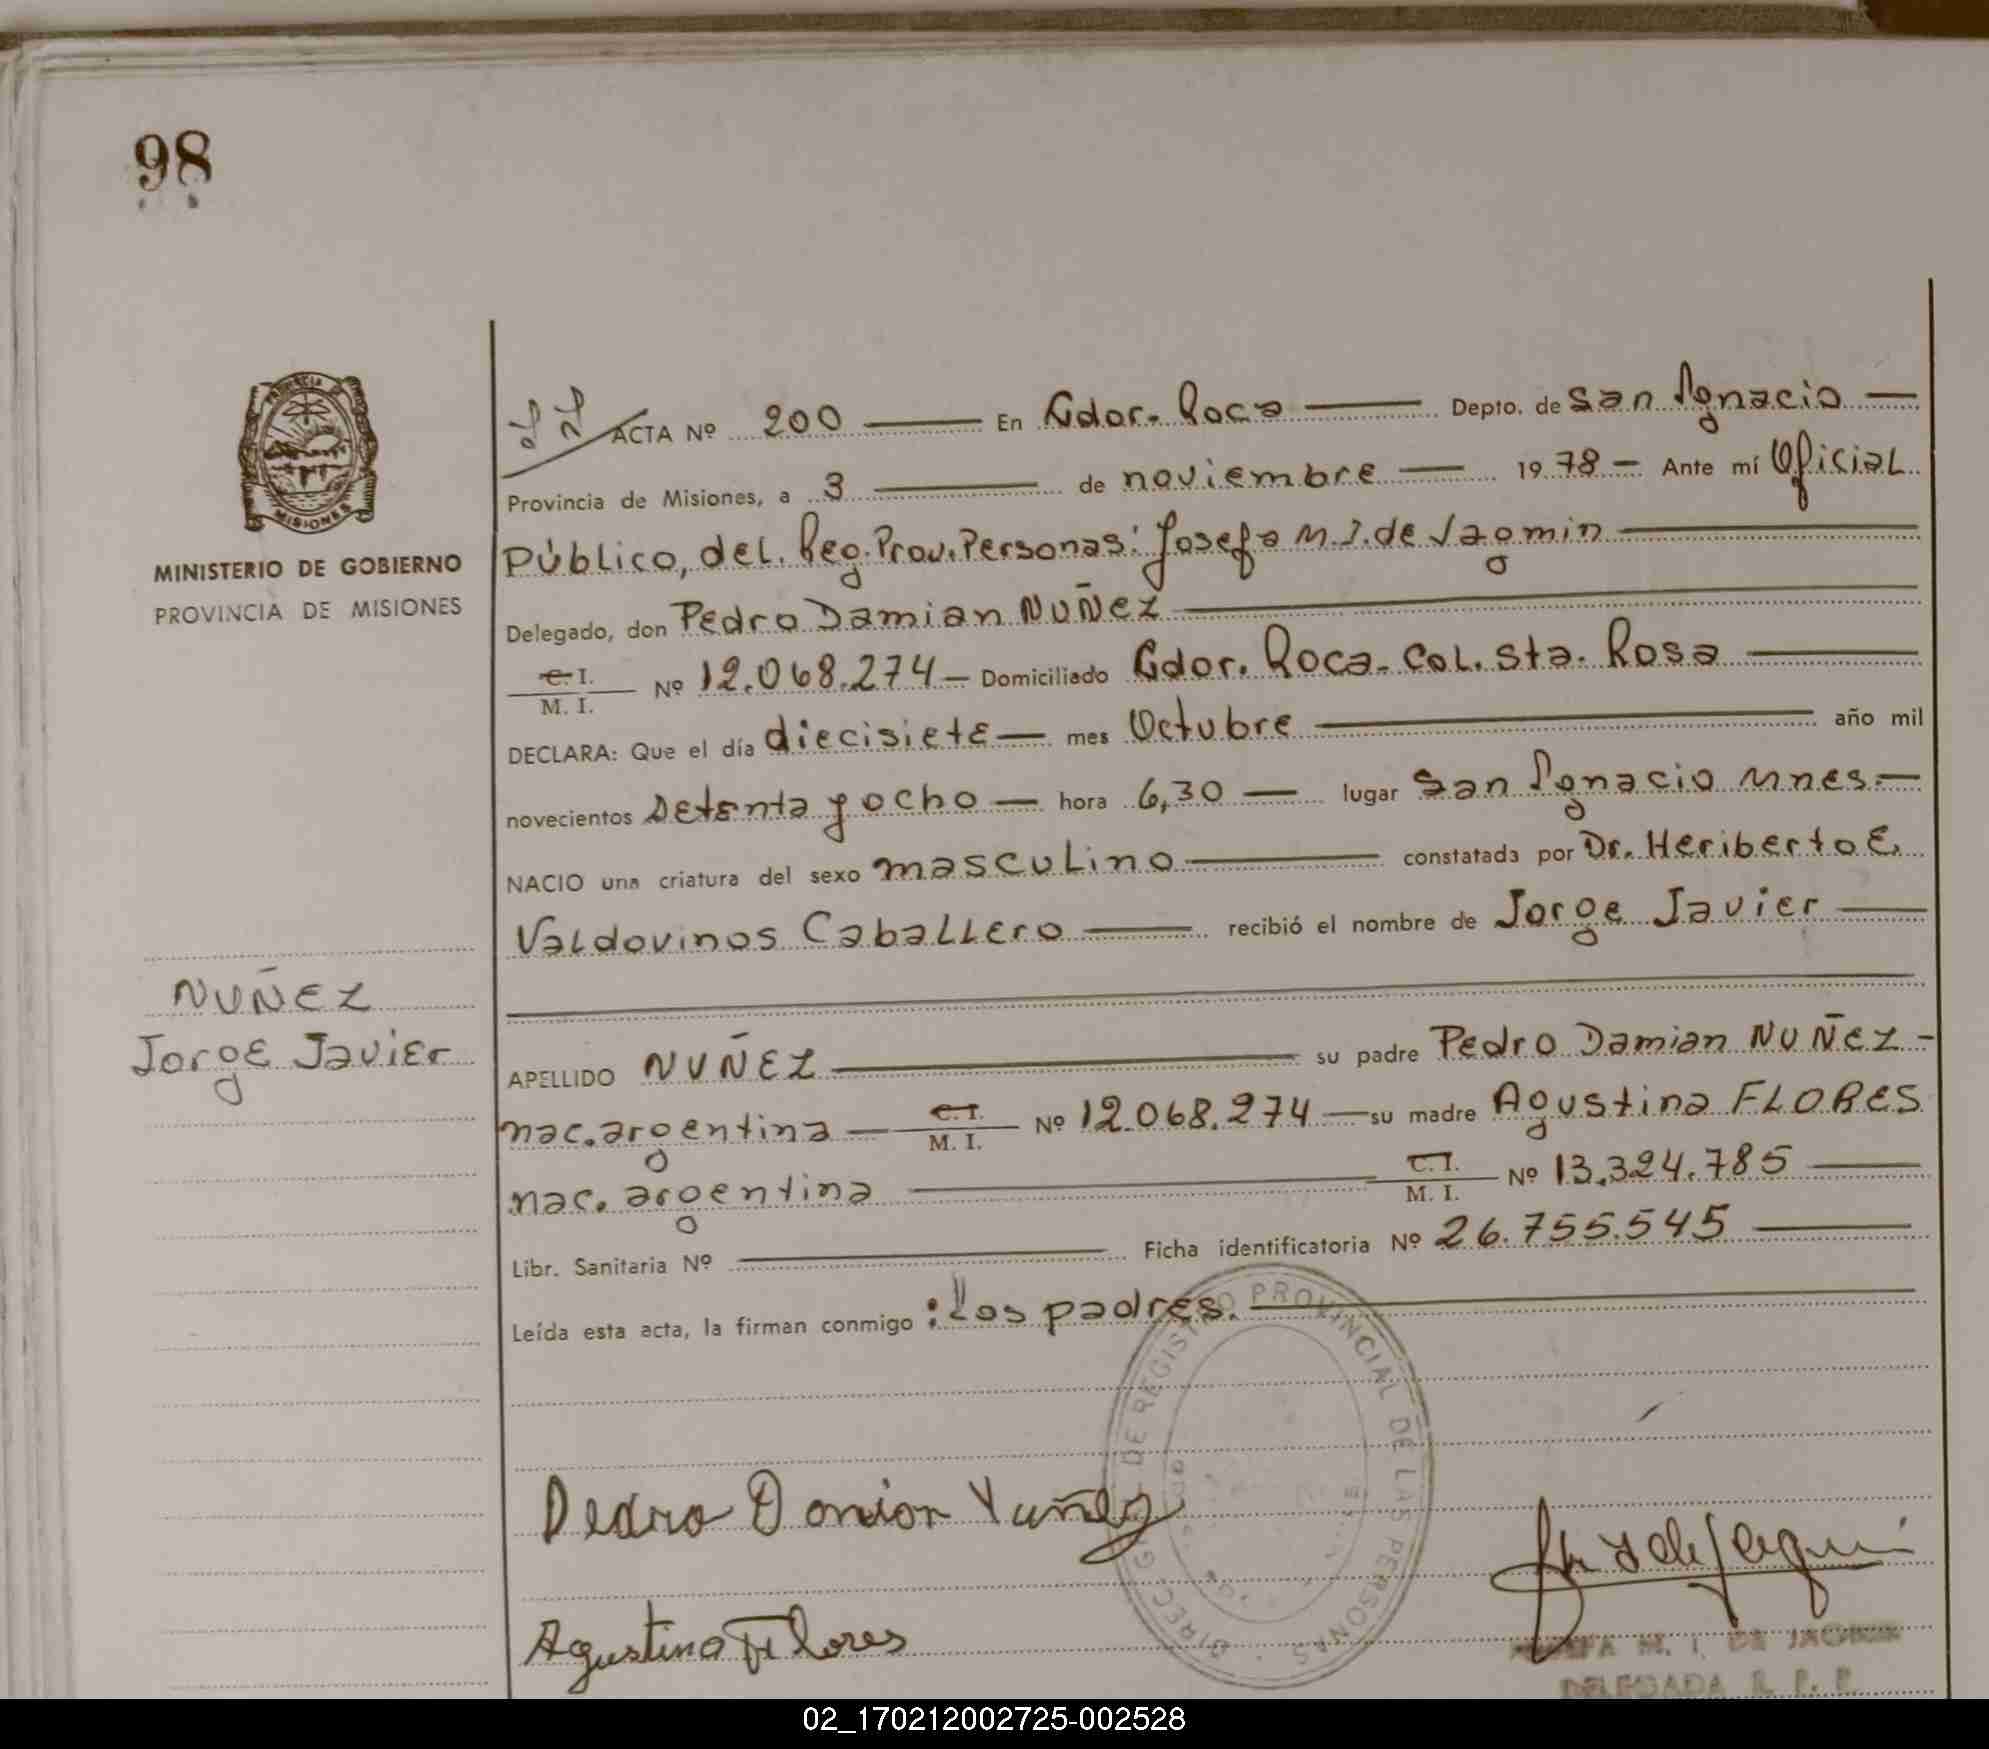 98
ACTA Nº 200 — En Gdor. Roca — Depto. de San Ignacio —
Provincia de Misiones, a 3 — de noviembre — 1978 — Ante mí Oficial
Público, del. Reg. Prov. Personas: Josefa M. I. de Jagmin —
Delegado, don Pedro Damian NUÑEZ —
C. I.
M. I. Nº 12.068.274 — Domiciliado Gdor. Roca. Col. Sta. Rosa —
DECLARA: Que el día diecisiete — mes Octubre — año mil
novecientos setenta y ocho — hora 6,30 — lugar San Ignacio Mnes. —
NACIO una criatura del sexo masculino — constatada por Dr. Heriberto E.
Valdovinos Caballero — recibió el nombre de Jorge Javier —
APELLIDO NUÑEZ — su padre Pedro Damian NUÑEZ —
nac. argentina — C. I. / M. I. Nº 12.068.274 — su madre Agustina FLORES
nac. argentina — C. I. / M. I. Nº 13.324.785 —
Libr. Sanitaria Nº — Ficha identificatoria Nº 26.755.545 —
Leída esta acta, la firman conmigo: Los padres. —
PROVINCIA DE
MISIONES
MINISTERIO DE GOBIERNO
PROVINCIA DE MISIONES
NUÑEZ
Jorge Javier
DIREC. G. DE REGISTRO PROVINCIAL DE LAS PERSONAS
Pedro Damian Nuñez
Agustina Flores
M. I. DE JAGMIN
DELEGADA R. P. P.
02_170212002725-002528